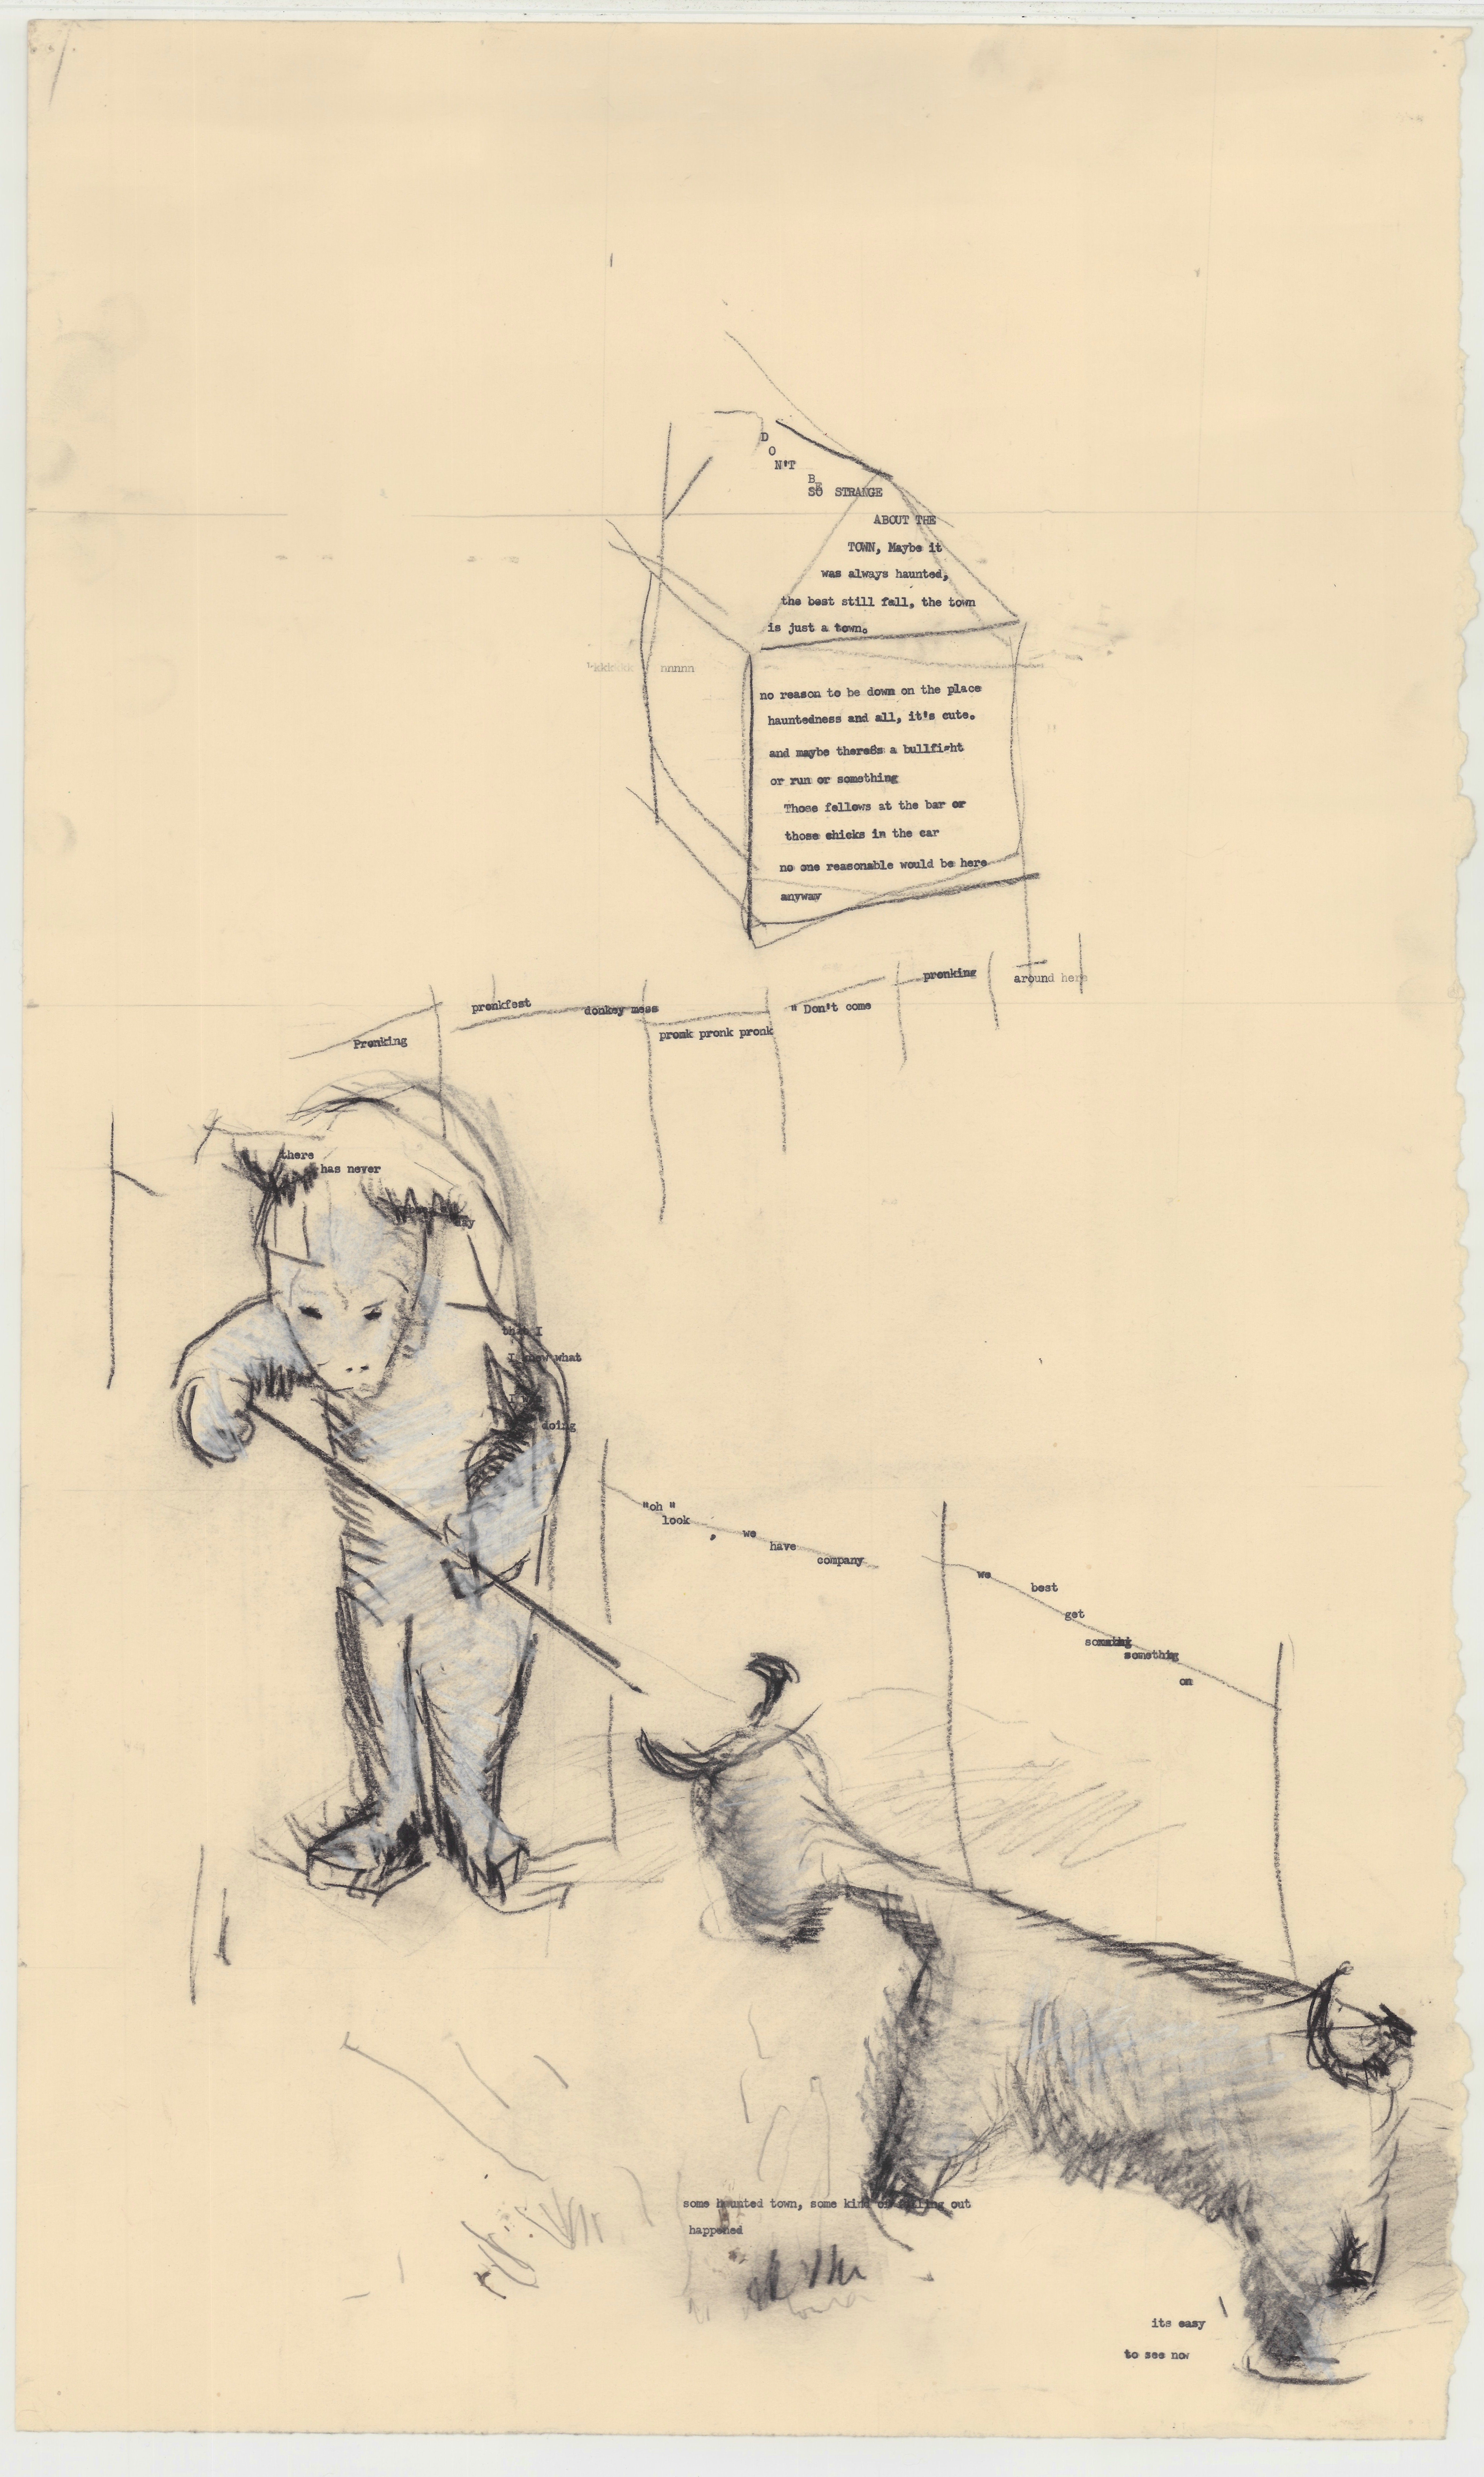 DON'T
BE
SO STRANGE
ABOUT THE
TOWN, Maybe it
was always haunted,
the best still fall, the town
is just a town.
nnnnn
no reason to be down on the place
hauntedness and all, it's cute.
and maybe there8s a bullfight
or run or something
Those fellows at the bar or
those chicks in the car
no one reasonable would be here
anyway
Pronking
pronkfest
donkey mess
pronk pronk pronk
" Don't come
pronking
around here
there
has never
day
that I
I knew what
doing
"oh "
look
, we
have
company
we
best
get
something
on
some haunted town, some kind of falling out
happened
its easy
to see now